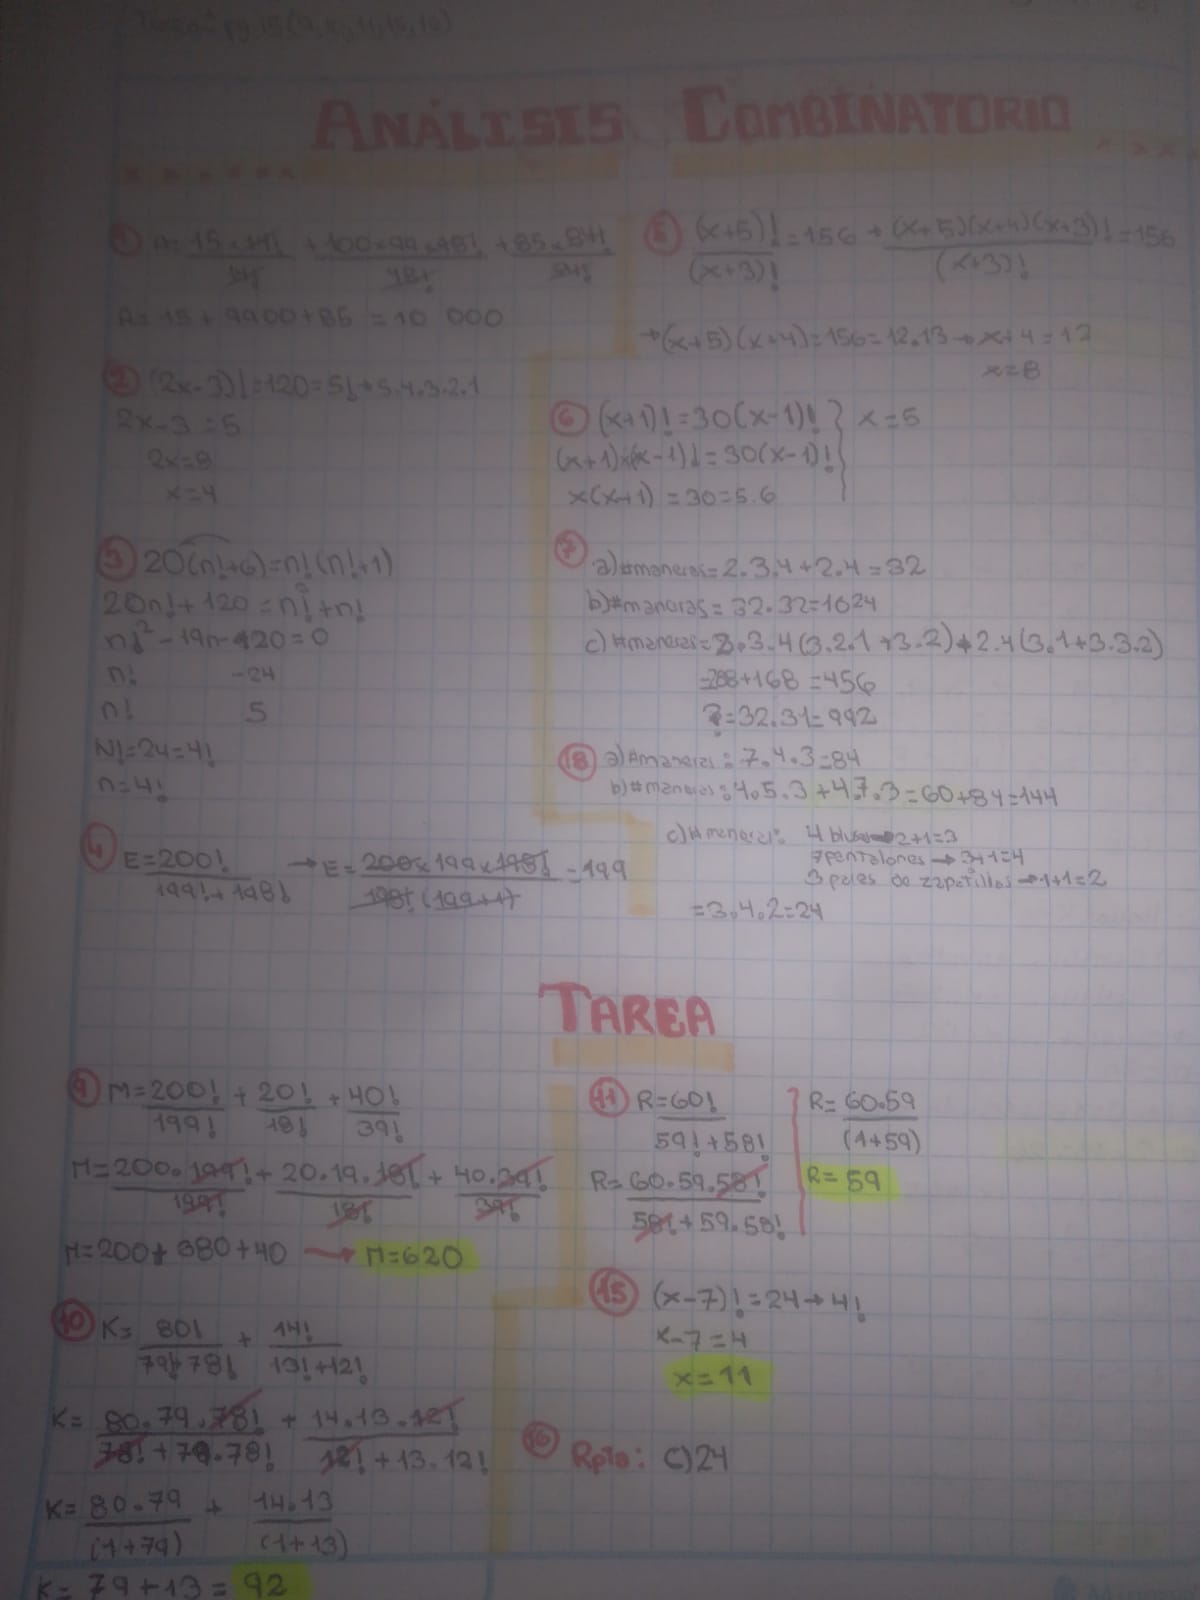 ANÁLISIS COMBINATORIO
① A= 15×14!/14! + 100×99×98!/98! + 85×84!/84!
A= 15 + 9900+85 = 10 000
② (2x-3)!=120=5!→5.4.3.2.1
2x-3=5
2x=8
x=4
③ 20(n!+6)=n!(n!+1)
20n!+120=n!²+n!
n!²-19n-120=0
n! -24
n! 5
N!=24=4!
n=4!
④ E=200!/199!+198! → E=200×199×198!/198!(199+1) =199
⑤ (x+5)!/(x+3)! =156 → (x+5)(x+4)(x+3)!/(x+3)! =156
→(x+5)(x+4)=156=12.13→x+4=12
x=8
⑥ (x+1)!=30(x-1)! } x=5
(x+1)x(x-1)!=30(x-1)!
x(x+1)=30=5.6
⑦ a)#maneras=2.3.4+2.4=32
b)#maneras=32.32=1024
c)#maneras=2.3.4(3.2.1+3.2)+2.4(3.1+3.3.2)
=288+168=456
?=32.31=992
18 a)#maneras=7.4.3=84
b)#maneras=4.5.3+4.7.3=60+84=144
c)#maneras: 4 blusas→2+1=3
7pantalones→3+1=4
3 pares de zapatillas→1+1=2
=3.4.2=24
TAREA
⑨ M=200!/199! + 20!/18! + 40!/39!
M=200.199!/199! + 20.19.18!/18! + 40.39!/39!
M=200+380+40 → M=620
⑩ K= 80!/79!+78! + 14!/13!+12!
K= 80.79.78!/78!+79.78! + 14.13.12!/12!+13.12!
K= 80.79/(1+79) + 14.13/(1+13)
K= 79+13= 92
⑪ R=60!/59!+58!
R=60.59.58!/58!+59.58!
R=60.59/(1+59)
R=59
⑮ (x-7)!=24→4!
x-7=4
x=11
⑯ Rpta: C)24